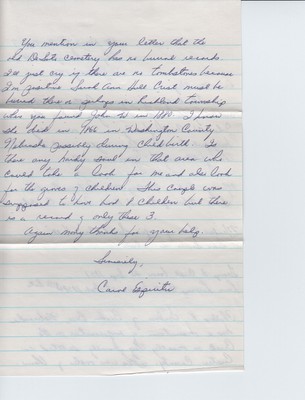 You mention in your letter that the
old DeSoto cemetery has no burial records
I'll just cry if there are no tombstones because
I'm positive Sarah Ann Hill Crist must be
buried there or perhaps in Richland township
where you found John H in 1880. I know
she died in 1866 in Washington County
Nebraska possibly during childbirth. Is
there any hardy soul in that area who
could take a look for me and also look
for the graves of children. This couple was
supposed to have had 8 children but there
is a record of only these 3.
Again many thanks for your help.
Sincerely,
Carol